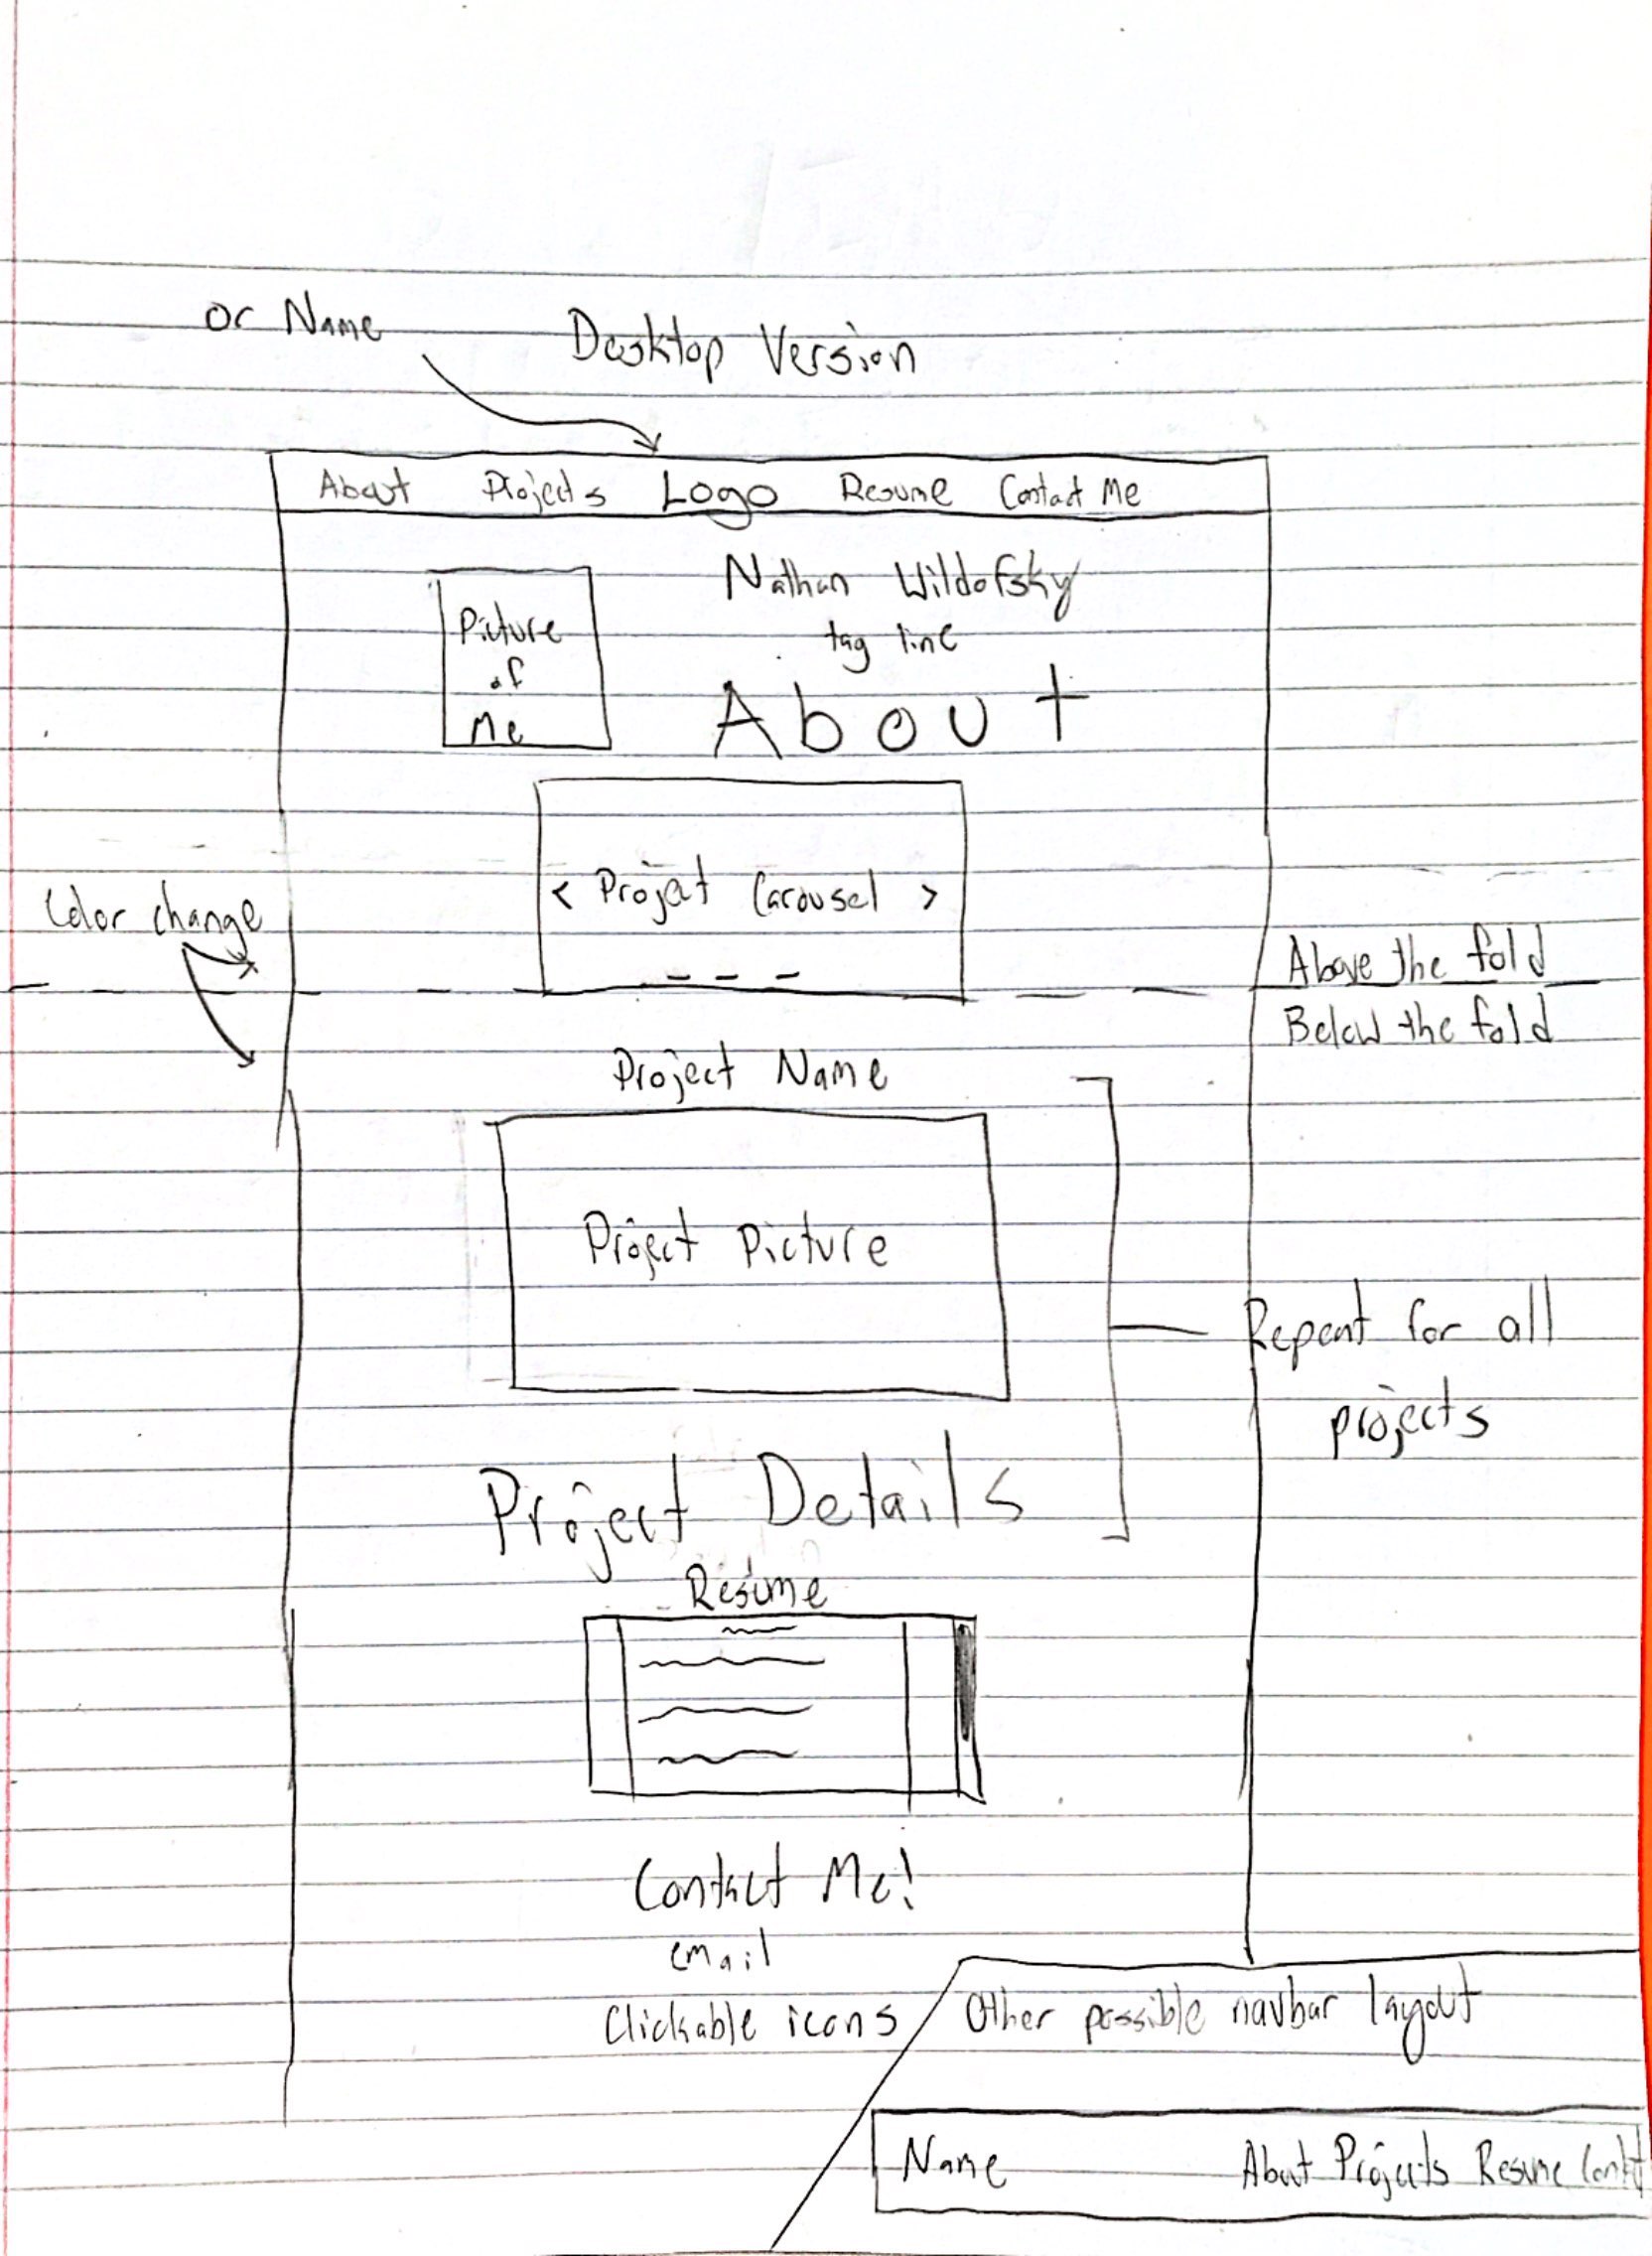 or Name
Desktop Version
About Projects Logo Resume Contact Me
Nathan Wildofsky
tag line
About
Picture
of
Me
< Project Carousel >
Color change
Above the fold
Below the fold
Project Name
Project Picture
Repeat for all
projects
Project Details
Resume
Contact Me!
email
Clickable icons
Other possible navbar layout
Name About Projects Resume Contt